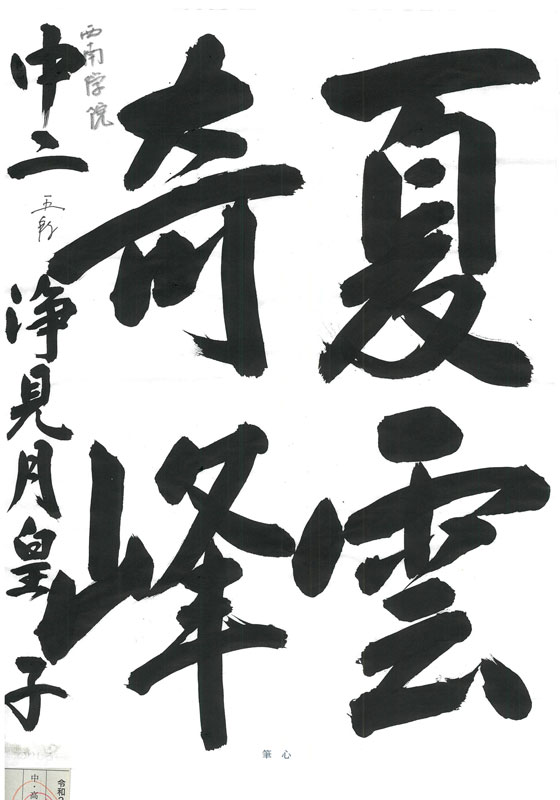 夏雲
奇峰
西南学院
中二 五段 浄見月皇子
心筆
令和
中・高